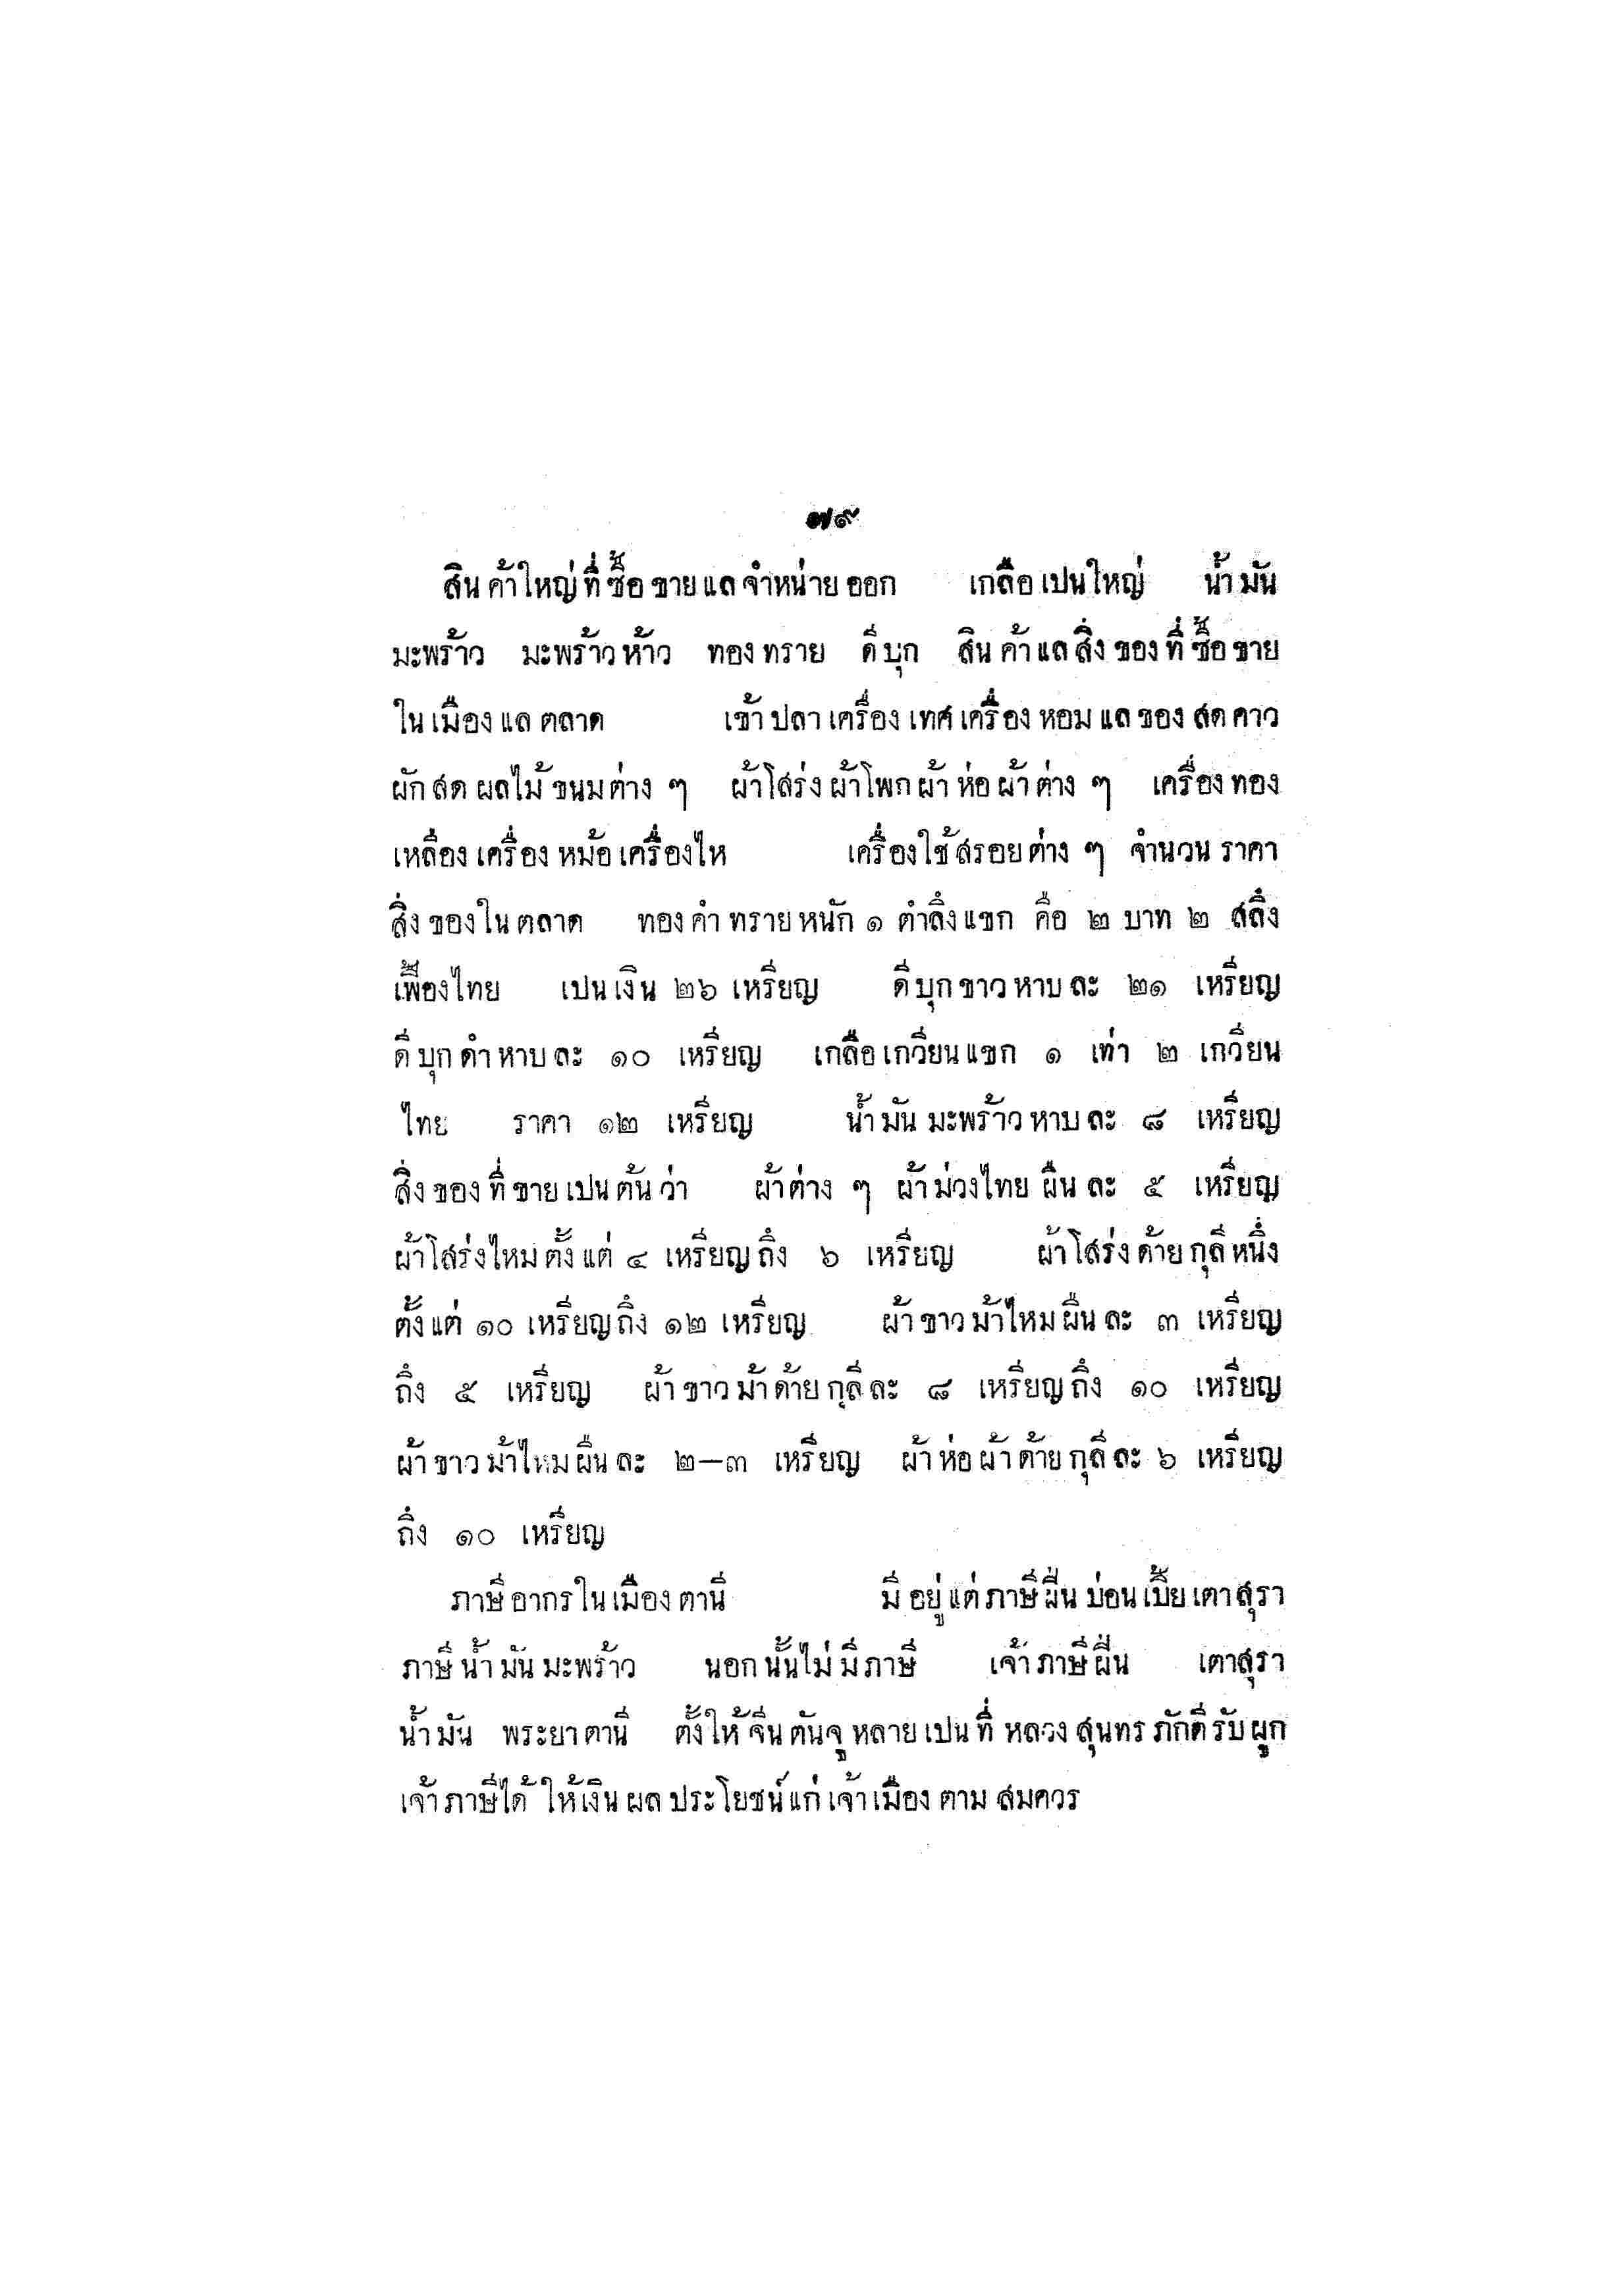 ๗๙
สินค้าใหญ่ที่ซื้อขายแลจำหน่ายออก เกลือเปนใหญ่ น้ำมัน
มะพร้าว มะพร้าวห้าว ทองทราย ดีบุก สินค้าแลสิ่งของที่ซื้อขาย
ในเมืองแลตลาด เข้าปลาเครื่องเทศเครื่องหอมแลของสดคาว
ผักสดผลไม้ขนมต่าง ๆ ผ้าโสร่งผ้าโพกผ้าห่อผ้าต่าง ๆ เครื่องทอง
เหลืองเครื่องหม้อเครื่องไห เครื่องใช้สรอยต่าง ๆ จำนวนราคา
สิ่งของในตลาด ทองคำทรายหนัก ๑ ตำลึงแขก คือ ๒ บาท ๒ สลึง
เฟื้องไทย เปนเงิน ๒๖ เหรียญ ดีบุกขาวหาบละ ๒๑ เหรียญ
ดีบุกดำหาบละ ๑๐ เหรียญ เกลือเกวียนแขก ๑ เท่า ๒ เกวียน
ไทย ราคา ๑๒ เหรียญ น้ำมันมะพร้าวหาบละ ๘ เหรียญ
สิ่งของที่ขายเปนต้นว่า ผ้าต่าง ๆ ผ้าม่วงไทยผืนละ ๕ เหรียญ
ผ้าโสร่งไหมตั้งแต่ ๔ เหรียญถึง ๖ เหรียญ ผ้าโสร่งด้ายกุลีหนึ่ง
ตั้งแต่ ๑๐ เหรียญถึง ๑๒ เหรียญ ผ้าขาวม้าไหมผืนละ ๓ เหรียญ
ถึง ๕ เหรียญ ผ้าขาวม้าด้ายกุลีละ ๘ เหรียญถึง ๑๐ เหรียญ
ผ้าขาวม้าไหมผืนละ ๒—๓ เหรียญ ผ้าห่อผ้าด้ายกุลีละ ๖ เหรียญ
ถึง ๑๐ เหรียญ
ภาษีอากรในเมืองตานี มีอยู่แต่ภาษีฝิ่นบ่อนเบี้ยเตาสุรา
ภาษีน้ำมันมะพร้าว นอกนั้นไม่มีภาษี เจ้าภาษีฝิ่น เตาสุรา
น้ำมัน พระยาตานี ตั้งให้จีนตันจูหลายเปนที่หลวงสุนทรภักดีรับผูก
เจ้าภาษีได้ให้เงินผลประโยชน์แก่เจ้าเมืองตามสมควร